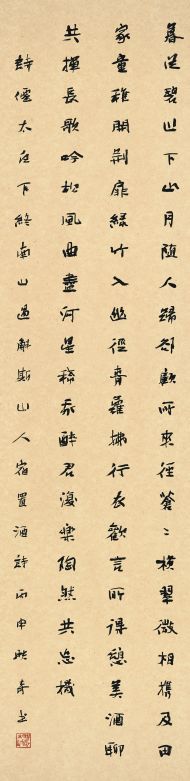 暮從碧山下山月隨人歸卻顧所來徑蒼〻橫翠微相攜及田
家童稚開荊扉綠竹入幽徑青蘿拂行衣歡言得所憩美酒聊
共揮長歌吟松風曲盡河星稀我醉君復樂陶然共忘機
錄李太白下終南山過斛斯山人宿置酒詩丙申